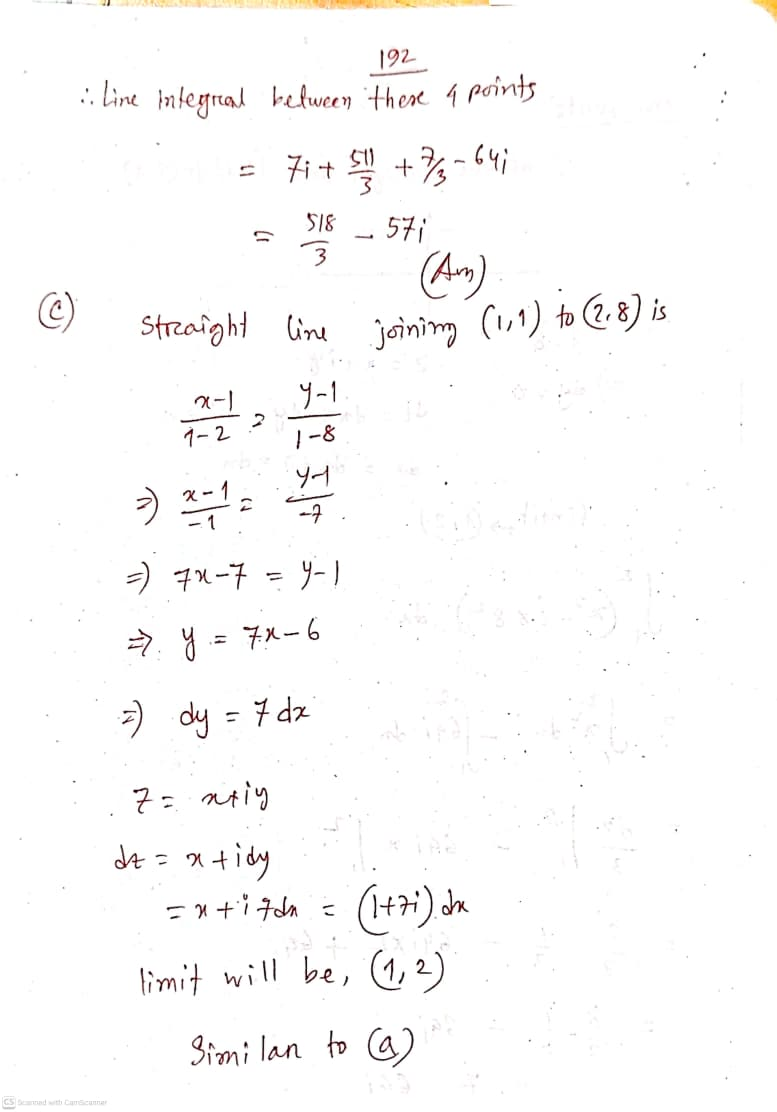 192
∴ Line integral between these 4 points
= 7i + 511/3 + 7/3 - 64i
= 518/3 - 57i
(Ans)
(c) Straight line joining (1,1) to (2,8) is
x-1/1-2 = y-1/1-8
⇒ x-1/-1 = y-1/-7
⇒ 7x-7 = y-1
⇒ y = 7x-6
⇒ dy = 7dx
z = x+iy
dz = x+idy
= x+i7dx = (1+7i) dx
limit will be, (1,2)
Similar to (a)
CS Scanned with CamScanner